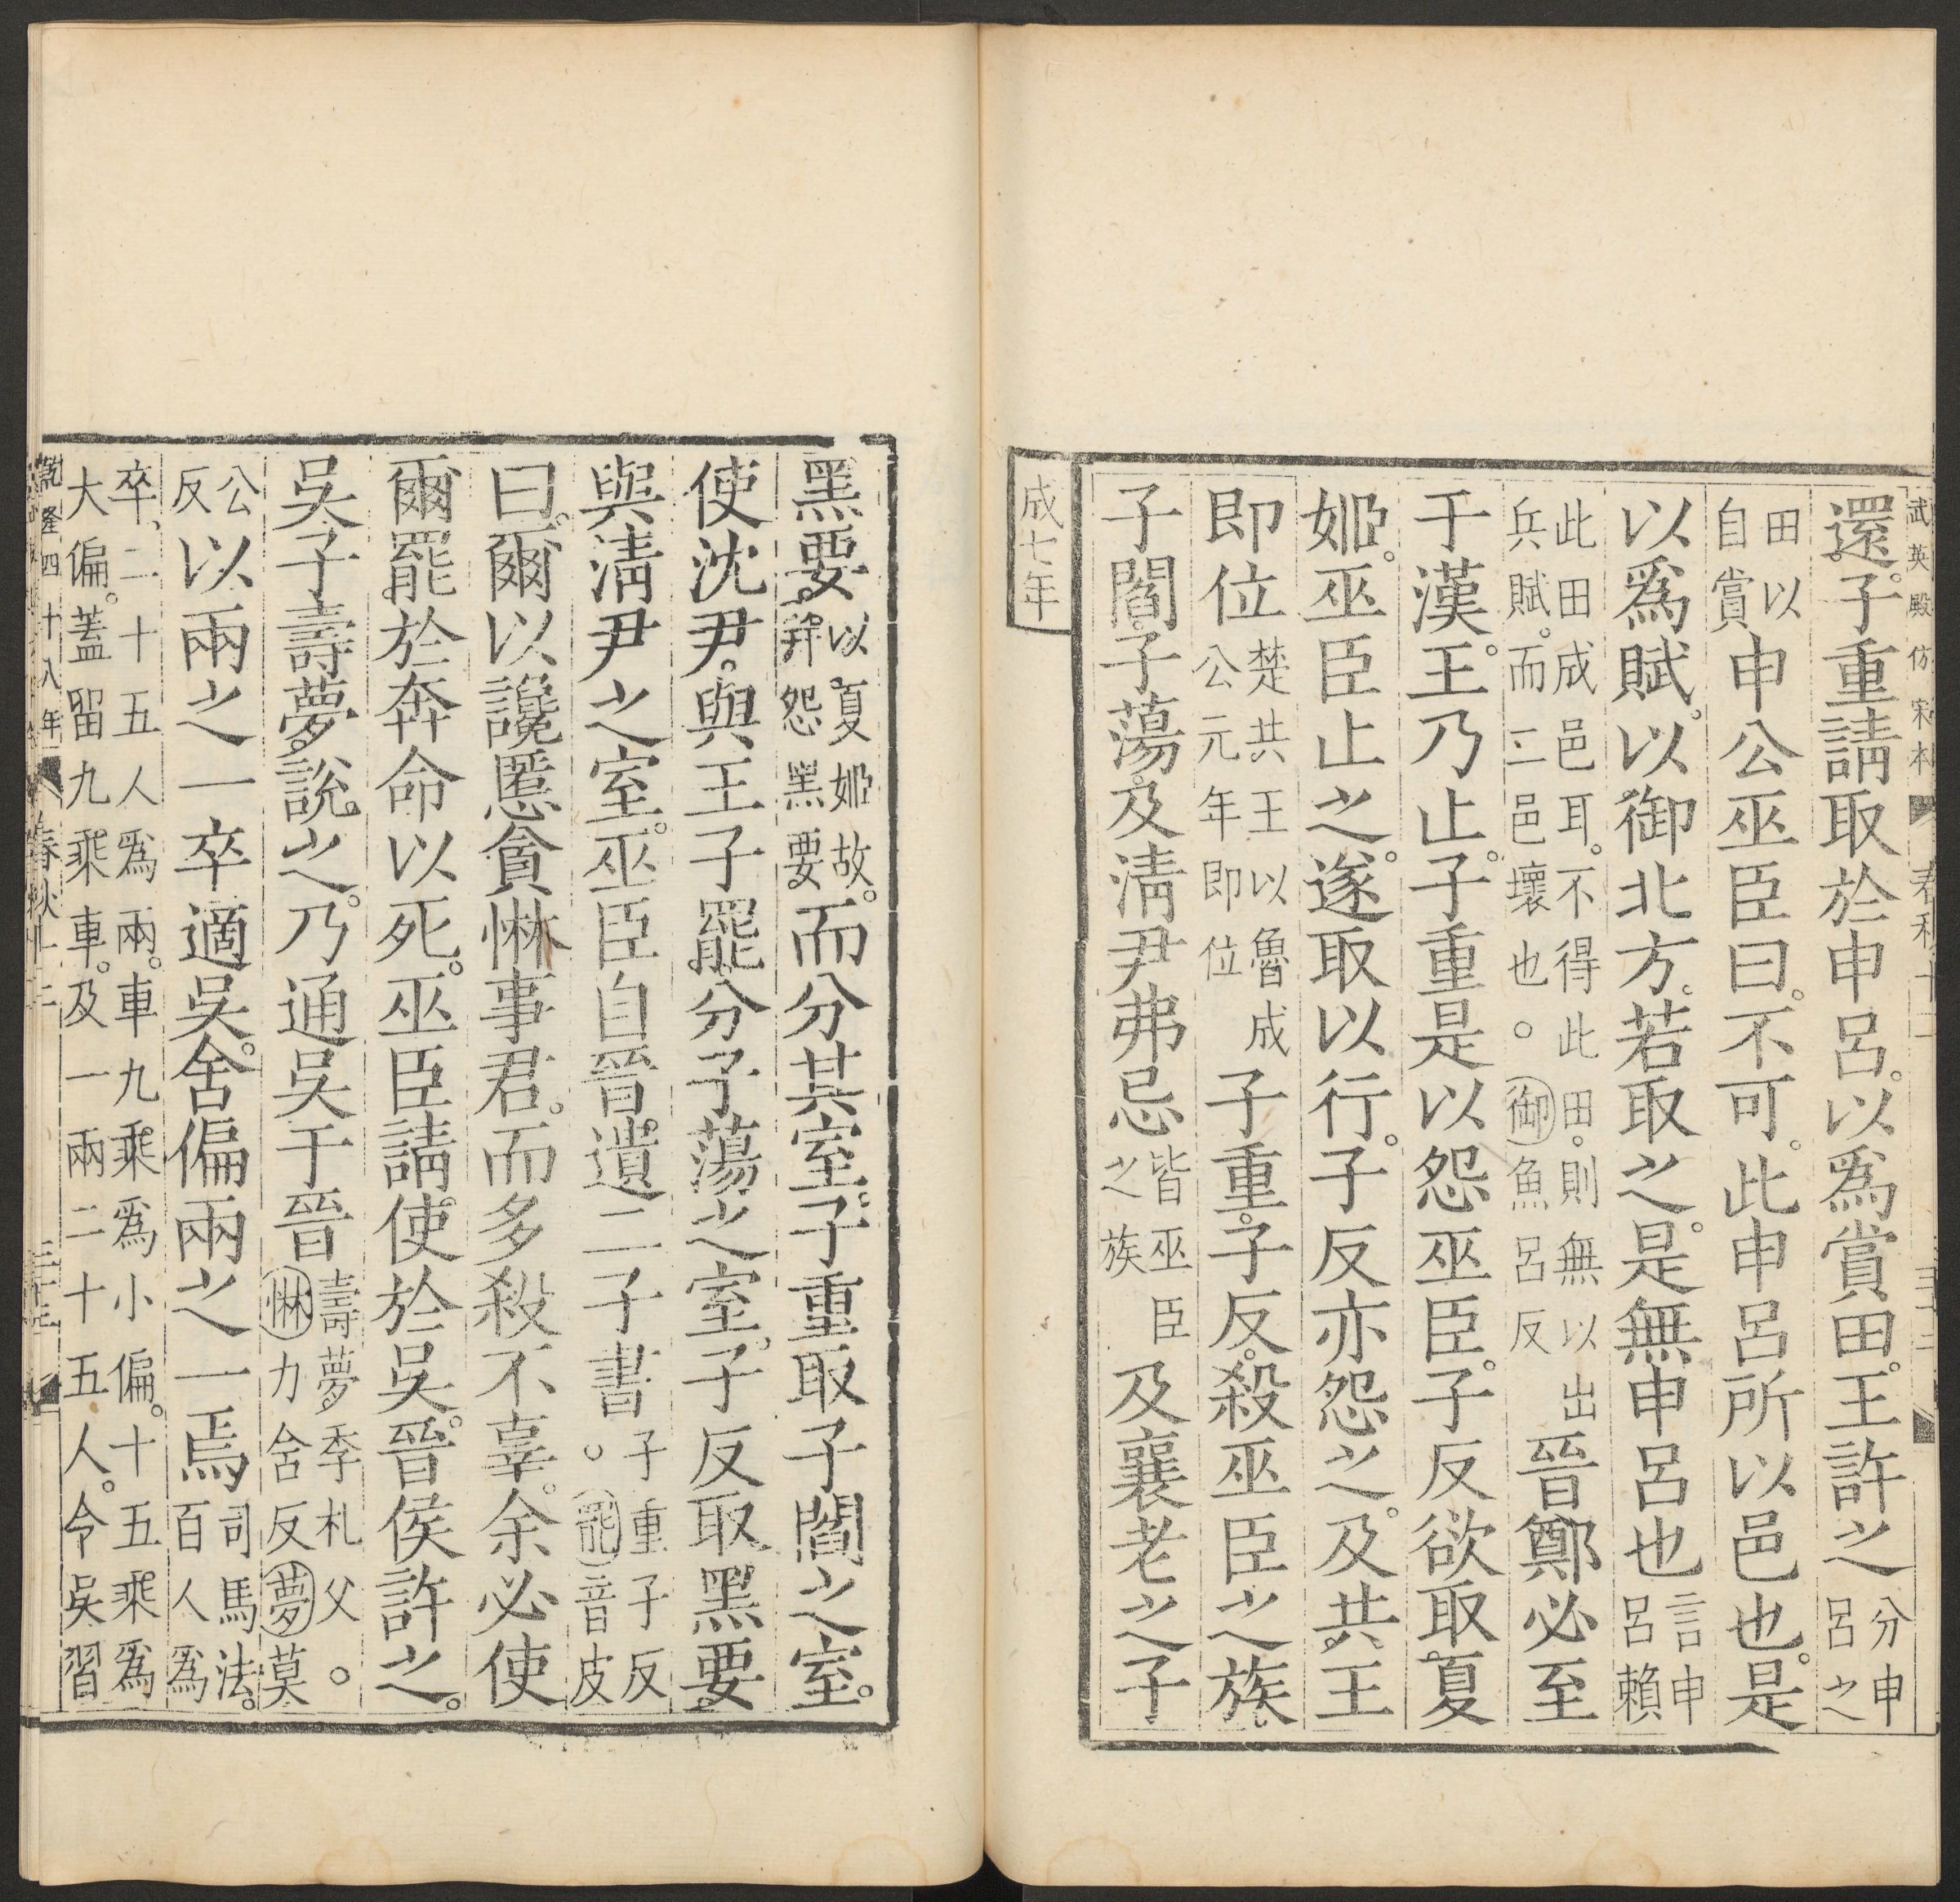 武英殿仿宋本 春秋十二 三十二
還。子重請取於申呂。以爲賞田。王許之分申呂之
田以自賞申公巫臣曰。不可。此申呂所以邑也。是
以爲賦。以御北方。若取之。是無申呂也言申呂賴
此田成邑耳。不得此田。則無以出兵賦。而二邑壞也。御魚呂反晉鄭必至
于漢。王乃止。子重是以怨巫臣。子反欲取夏
姬。巫臣止之。遂取以行。子反亦怨之。及共王
即位楚共王以魯成公元年即位子重。子反。殺巫臣之族
子閻。子蕩。及淸尹弗忌皆巫臣之族及襄老之子
成七年
黑要。以夏姬故。幷怨黑要。而分其室。子重取子閻之室。
使沈尹。與王子罷。分子蕩之室。子反取黑要。
與淸尹之室。巫臣自晉。遺二子書子重子反。罷音皮
曰。爾以讒慝貪惏事君。而多殺不辜。余必使
爾罷於奔命以死。巫臣請使於吳。晉侯許之。
吳子壽夢。說之。乃通吳于晉壽夢季札父。惏力舍反夢莫
公反以兩之一卒適吳。舍偏兩之一焉司馬法。百人爲
卒、二十五人爲兩。車九乘爲小偏。十五乘爲大偏。蓋留九乘車。及一兩二十五人。令吳習
乾隆四十八年 春秋十二 三十三